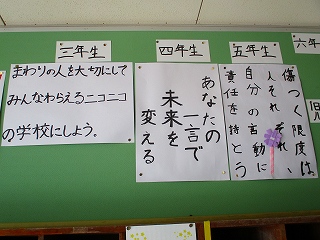 三年生
まわりの人を大切にして
みんなわらえるニコニコ
の学校にしよう。
四年生
あなたの
一言で
未来を
変える
五年生
傷つく限度は、
人それぞれ、
自分の言動に
責任を持とう
六年